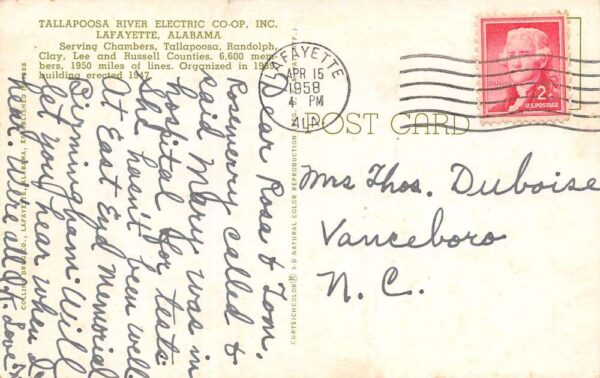 TALLAPOOSA RIVER ELECTRIC CO-OP, INC.
LAFAYETTE, ALABAMA
Serving Chambers, Tallapoosa, Randolph,
Clay, Lee and Russell Counties, 6,600 mem-
bers, 1950 miles of lines. Organized in 1939,
building erected 1947.
LAFAYETTE
APR 15
1958
4 PM
ALA.
2¢
U.S. POSTAGE
POST CARD
Dear Rose & Tom,
Rosemary called &
said Mary was in
hospital for tests.
She hasn't been well.
At East End Memorial
Birmingham. Will
let you hear when I
hear. We're all O.K. Love,
Mrs Thos. Duboise
Vanceboro
N. C.
COLLINS DRUG CO., LAFAYETTE, ALABAMA, ESTABLISHED
CURTEICHCOLOR® 3-D NATURAL COLOR REPRODUCTION